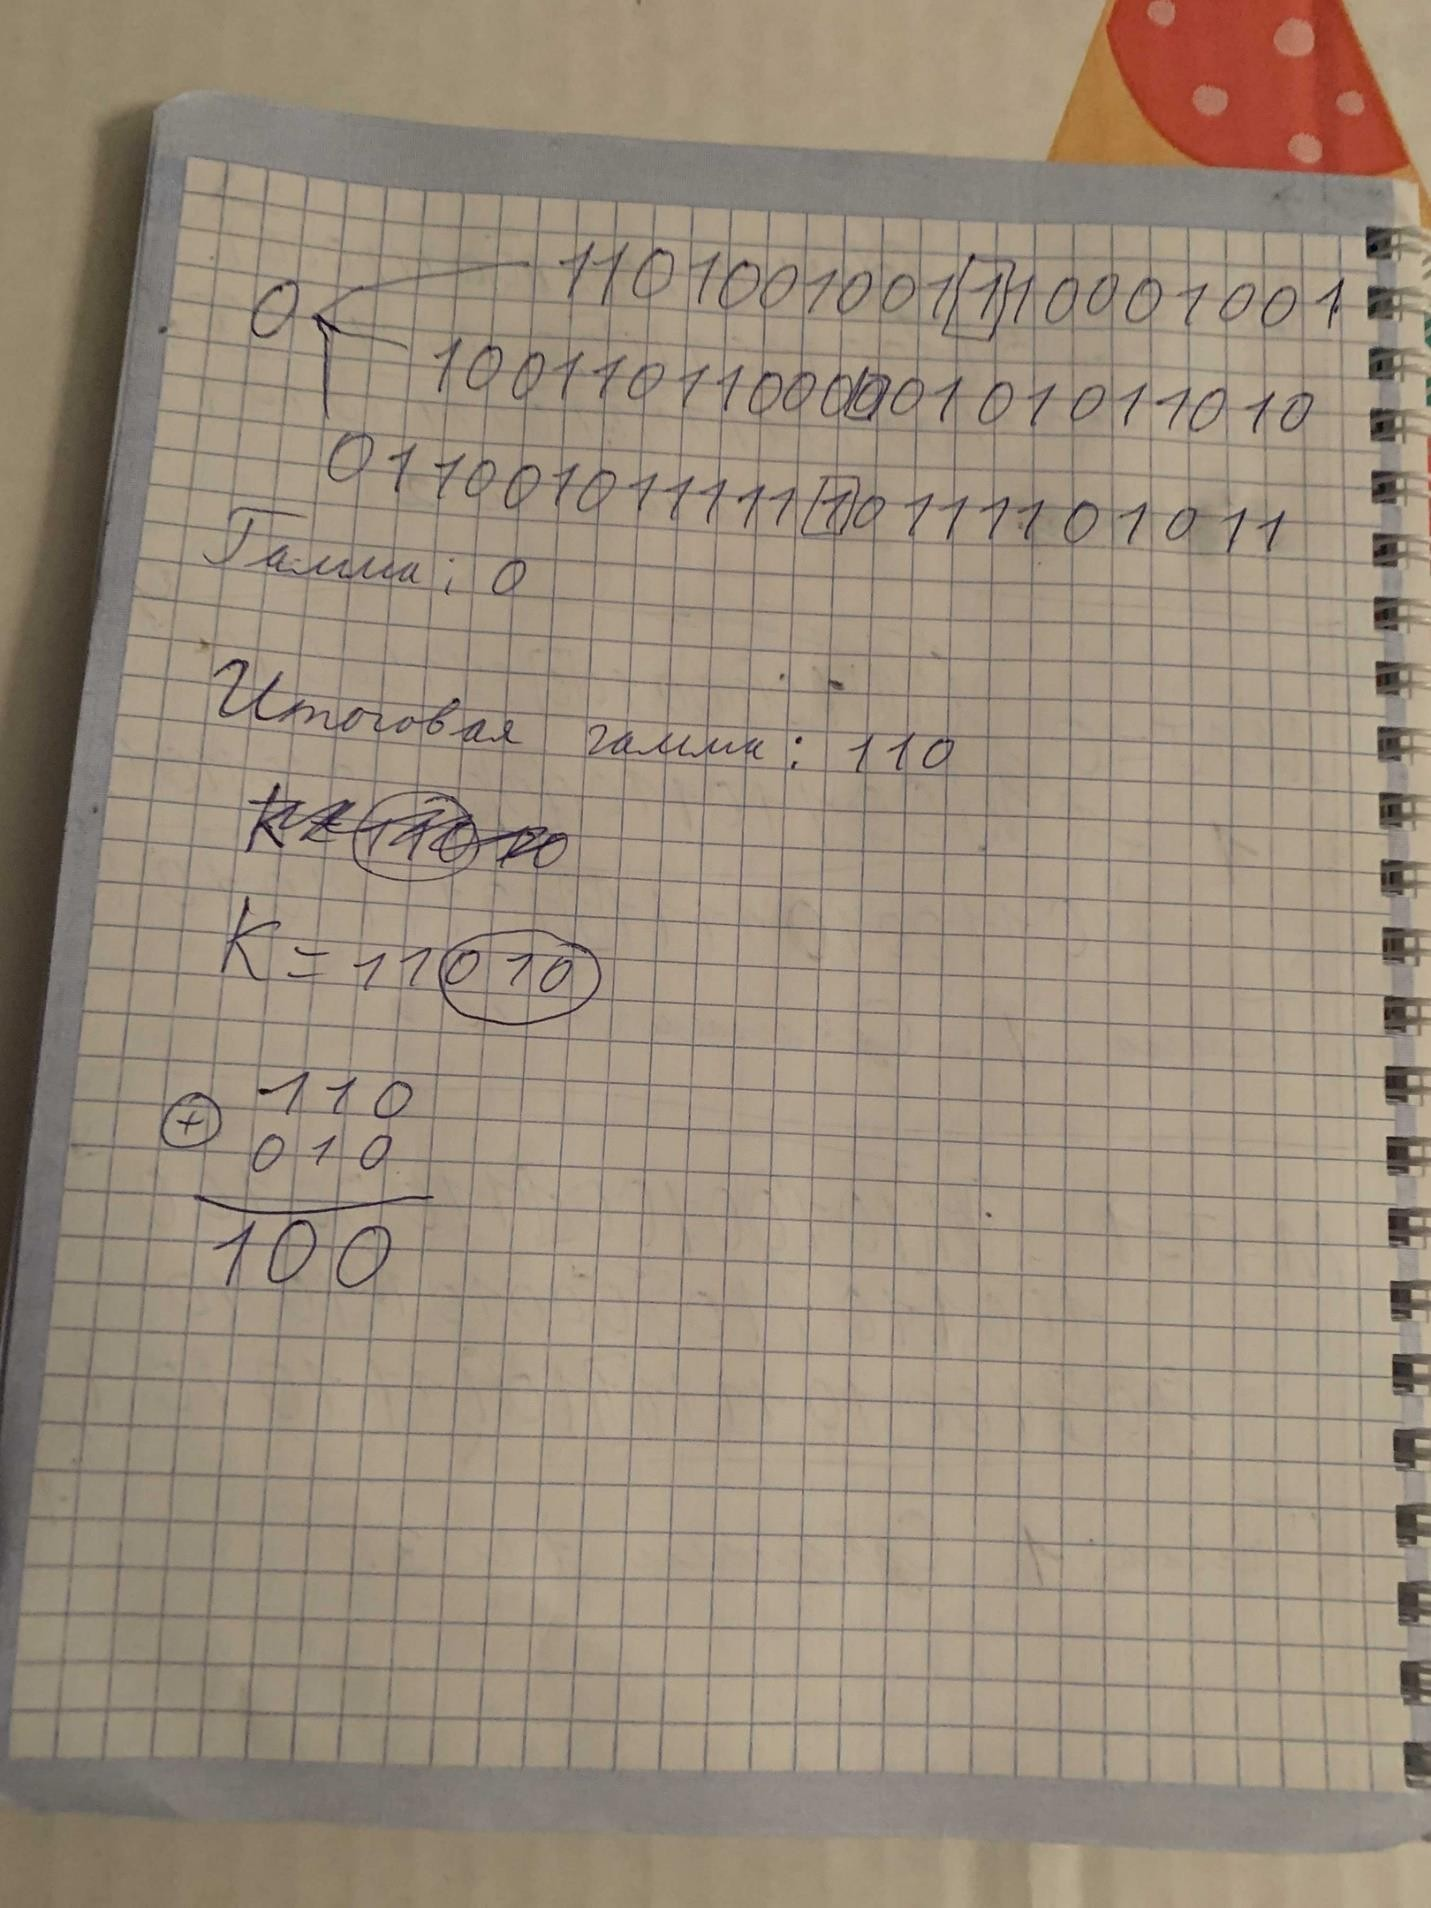 0 1101001001110001001
10011011000001010110 10
01100101111110111101011
Гамма: 0
Итоговая гамма: 110
K = 11010
⊕ 110
010
100